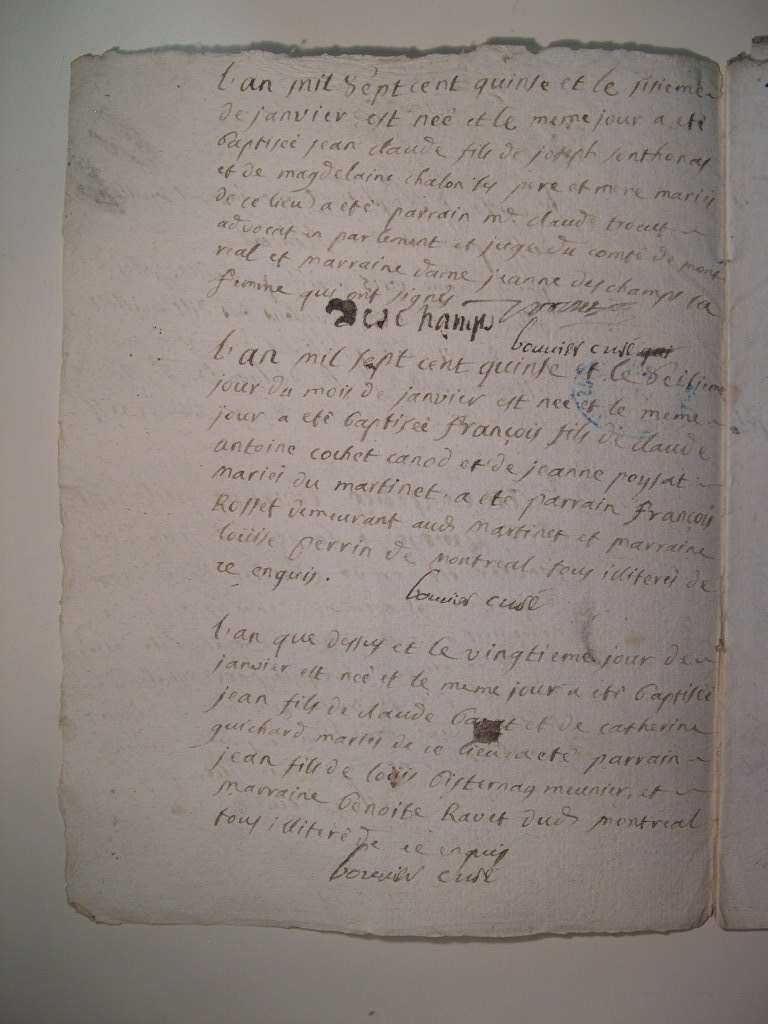 L'an mil sept cent quinse et le sisieme
de janvier est neé et le meme jour a eté
baptiseé jean claude fils de joseph sonthonas
et de magdelaine chalon ses pere et mere mariés
de ce lieu a eté parrain mr. claude trocut
advocat en parlement et juge du comté de mont
real et marraine dame jeanne deschamps sa
femme qui ont signés
Deschamps
bouvier curé
L'an mil sept cent quinse et le seisieme
jour du mois de janvier est neé et le meme
jour a eté baptiseé françois fils de claude
antoine cochet canod et de jeanne poysat
mariés du martinet, a eté parrain françois
Rosset demeurant aud. martinet et marraine
loüise perrin de montreal tous illiterés de
ce enquis.
bouvier curé
L'an que dessus et le vingtieme jour de
janvier est neé et le meme jour a eté baptiseé
jean fils de claude et de catherine
guichard mariés de ce lieu a eté parrain
jean fils de loüis bisternay meunier, et
marraine benoite Ravet dud. montreal
tous illiteré de ce enquis
bouvier curé